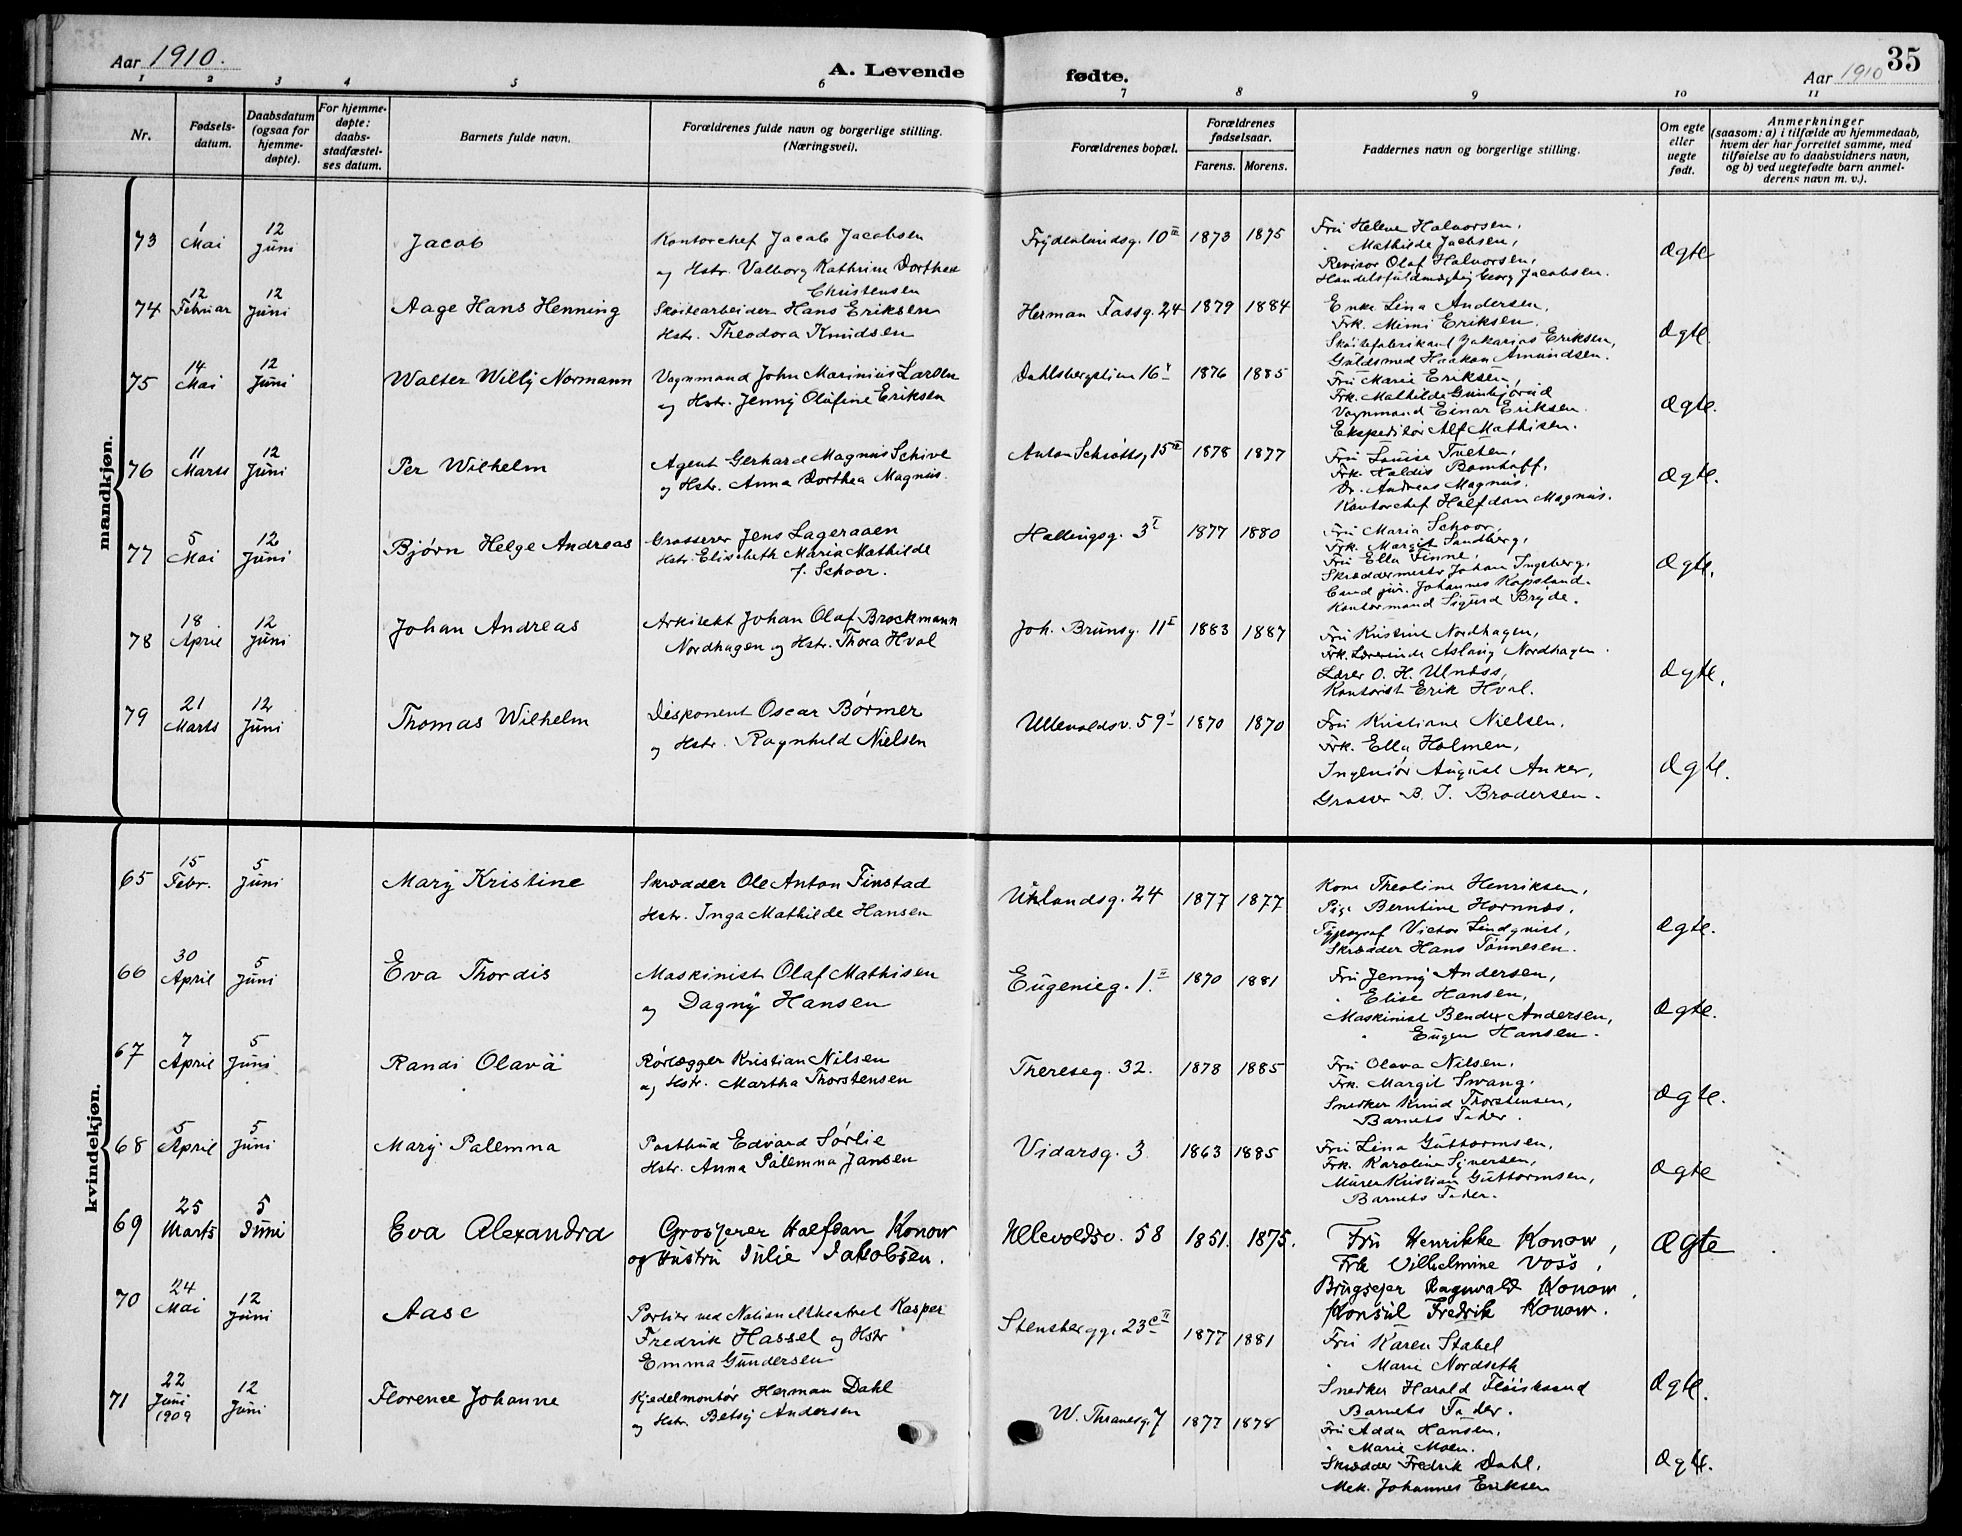 Aar 1910.
A. Levende
fødte.
Aar 1910
35
1 2 3 4 5 6 7 8 9 10 11
Nr.
Fødsels-
datum.
Daabsdatum
(ogsaa for
hjemme-
døpte).
For hjemme-
døpte:
daabs-
stadfæstel-
ses datum.
Barnets fulde navn.
Forældrenes fulde navn og borgerlige stilling.
(Næringsvei).
Forældrenes bopæl.
Forældrenes
fødselsaar.
Farens. Morens.
Faddernes navn og borgerlige stilling.
Om egte
eller
uegte
født.
Anmerkninger
(saasom: a) i tilfælde av hjemmedaab,
hvem der har forrettet samme, med
tilføielse av to daabsvidners navn,
og b) ved uegtefødte barn anmel-
derens navn m. v.).
mandkjøn.
73
1
Mai
12
Juni
Jacob
Kontorchef Jacob Jacobsen
og Hstr. Valborg Kathrine Dorthea
Christensen
Frydenlundsg. 10 III
1873 1895
Fru Helene Halvorsen,
" Mathilde Jacbsen,
Revisor Olaf Halvorsen,
Handelsfuldmægtig Georg Jacobsen.
Ægte
74
12
Februar
12
Juni
Aage Hans Henning
Skoitearbeider Hans Eriksen
Hstr. Theodora Knudsen
Herman Fossg. 24
1879 1884
Enke Lina Andersen,
Frk. Mimi Eriksen,
Skoitefabrikant Zakarias Eriksen,
Guldsmed Haakon Amundsen.
Ægte
75
14
Mai
12
Juni
Walter Willy Normann
Vognmand John Marinius Larsen
og Hstr. Jenny Olufine Eriksen
Dahlsbergstien 16 I
1876 1885
Fru Marie Eriksen,
Frk. Mathilde Gunbjørud
Vognmand Einar Eriksen.
Ekspeditør Alf Mathisen.
Ægte.
76
11
Marts
12
Juni
Per Wilhelm
Agent Gerhard Magnus Schive
og Hstr. Anna Dorthea Magnus.
Anton Schiøttsg. 15 II
1878 1877
Fru Louise Tveten,
Frk. Haldis Bomhoff,
Dr. Andreas Magnus.
Kontorchef Halfdan Magnus.
Ægte.
77
5
Mai
12
Juni
Bjørn Helge Andreas
Grosserer Jens Lageraaen
Hstr. Elisabeth Maria Mathilde
f. Schoor.
Hallingsg. 3 I
1877 1880
Fru Maria Schoor,
Frk. Margit Sandberg,
Fru Ella Finne,
Skræddermester Johan Ingeberg,
Cand jur. Johannes Kopsland.
Kontormand Sigurd Bryde.
Ægte.
78
18
April
12
Juni
Johan Andreas
Arkitekt Johan Olaf Brockmann
Nordhagen og Hstr. Thora Hval
Joh. Brunsg. 11 I
1883 1887
Fru Kristine Nordhagen,
Frk. Lærerinde Aslaug Nordhagen.
Lærer O. H. Ulnæss,
Kontorist Erik Hval.
Ægte.
79
21
Marts
12
Juni
Thomas Wilhelm
Disponent Oscar Børmer
og Hstr. Ragnhild Nielsen
Ullevoldsv. 59 I
1870 1870
Fru Kristiane Nielsen,
Frk. Ella Holmen,
Ingeniør August Anker,
Grosser B. J. Brodersen.
Ægte.
kvindekjøn.
65
15
Febr.
5
Juni
Mary Kristine
Skrædder Ole Anton Finstad
Hstr. Inga Mathilde Hansen
Uhlandsg. 24
1877 1877
Kone Theoline Henriksen,
Pige Berntine Hornnæs,
Typograf Victor Lindqvist,
Skrædder Hans Tønnesen.
Ægte.
66
30
April
5
Juni
Eva Thordis
Maskinist Olaf Mathisen
og Dagny Hansen
Eugenieg. 1. II
1870 1881
Fru Jenny Andersen,
" Elise Hansen,
Maskinist Bender Andersen,
" Eugen Hansen.
Ægte.
67
7
April
5
Juni
Randi Olava
Rørlægger Kristian Nilsen
og Hstr. Martha Thorstensen
Thereseg. 32.
1878 1885
Fru Olava Nilsen,
Frk. Margit Svang,
Snedker Knud Thorstensen,
Barnets Fader.
Ægte.
68
5
April
5
Juni
Mary Palemna
Postbud Edvard Sørlie
Hstr. Anna Palemna Jansen
Vidarsg. 3
1863 1885
Fru Lina Guttormsen,
Frk. Karoline Syversen,
Murer Kristian Guttormsen,
Barnets Fader.
Ægte
69
25
Marts
5
Juni
Eva Alexandra
Grosserer Halfdan Konow
og Hustru Julie Jakobsen.
Ullevoldsv. 58
1851. 1875.
Fru Henrikke Konow,
Frk Vilhelmine Voss,
Brugsejer Ragnvald Konow,
Konsul Fredrik Konow.
Ægte
70
24
Mai
12
Juni
Aase
Portier ved Nationaltheatret Kasper
Fredrik Hassel og Hstr
Emma Gundersen
Stensbergg. 23 c II
1877 1881
Fru Karen Stabel
" Marie Nordseth
Snedker Harald Fløisksund
Barnets Fader.
Ægte.
71
22
Juni
1909
12
Juni
Florence Johanne
Kjedelmontør Herman Dahl
og Hstr. Betsy Andersen
W. Thranesg. 7
1877 1878
Fru Adda Hansen,
" Marie Moen.
Skrædder Fredrik Dahl,
Mek. Johannes Eriksen
Ægte.